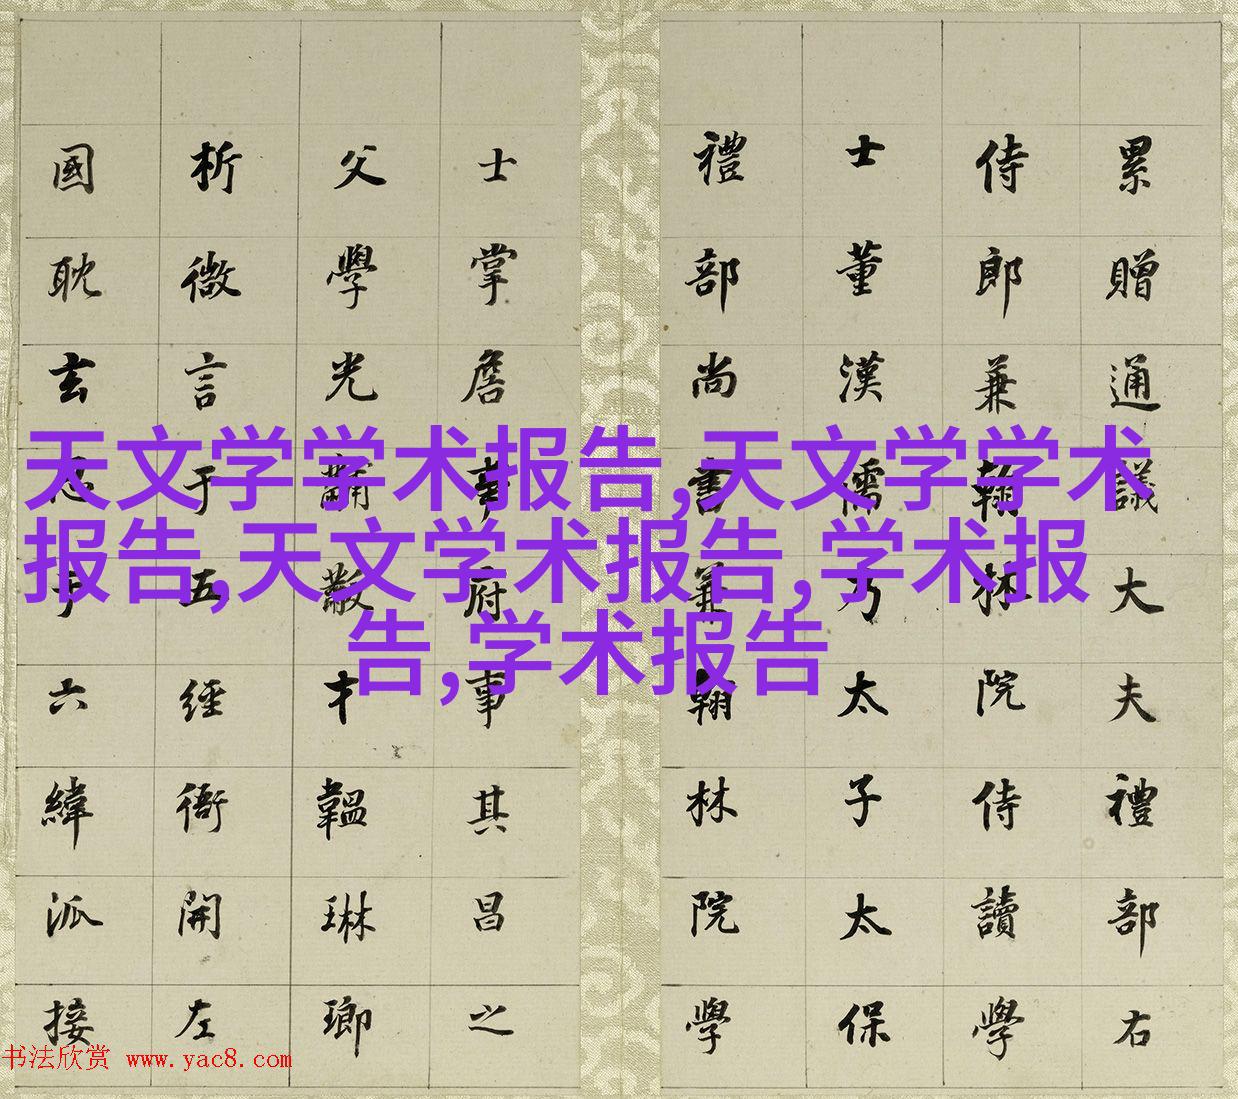 累贈通議大夫禮部右
侍郎兼翰林院侍讀學
士董漢儒乃太子太保
禮部尚書兼翰林院學
士掌詹事府事其昌之
父學光黼黻才韞琳瑯
析微言于五經衙開左
國耽玄思于六緯派接
天文学学术报告,天文学学术
报告,天文学术报告,学术报
告,学术报告
书法欣赏 www.yac8.com